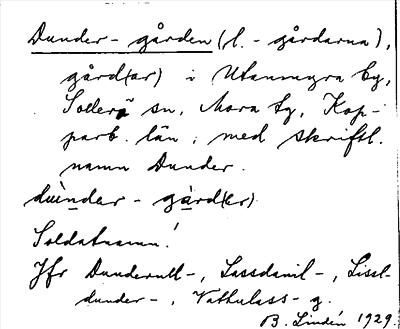 Dunder-gården (l. -gårdarna),
gård(ar) i Utanmyra by,
Sollerö sn, Mora tg, Kop-
parb. län; med skriftl.
namn Dunder.
dùndar-gàrd(er)
Soldatnamn!
Jfr Dunderull-, Lassdanil-, Lissl-
dunder-, Vathulass-g.
B. Lindén 1929.